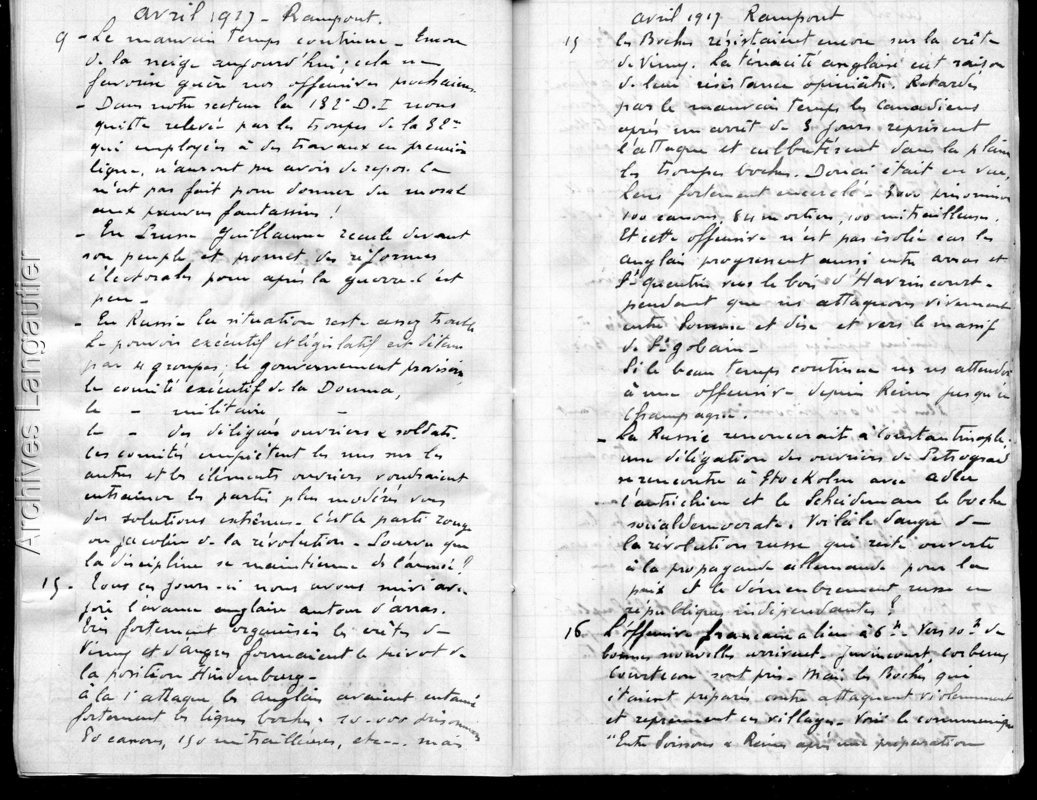 avril 1917 - Rampont.
9 - Le mauvais temps continue - Encore
de la neige aujourd'hui; cela ne
favorise guère nos offensives prochaines
- Dans notre secteur la 132e D.I nous
quitte relevée par les troupes de la 32e
qui employées à des travaux en première
ligne, n'auront pu avoir de repos. Ce
n'est pas fait pour donner du moral
aux pauvres fantassins!
- En Prusse Guillaume recule devant
son peuple et promet des réformes
électorales pour après la guerre - C'est
peu -
- En Russie la situation reste assez trouble
Le pouvoir exécutif et législatif est détenu
par 4 groupes; le gouvernement provisoire,
le comité exécutif de la Douma,
le - militaire, -
le - des délégués ouvriers & soldats.
Ces comités empiètent les uns sur les
autres et les éléments ouvriers voudraient
entrainer les partis plus modérés vers
des solutions extrêmes - C'est le parti rouge
ou jacobin de la révolution - Pourvu que
la discipline se maintienne ds l'armée!!
15 - Tous ces jours-ci nous avons suivi avec
joie l'avance anglaise autour d'Arras.
Très fortement organisées les crêtes de
Vimy et d'Angres formaient le pivot de
la position Hindenburg -
à la 1e attaque les Anglais avaient entamé
fortement les lignes boches - 10-000 prisonniers
80 canons, 150 mitrailleuses, etc--- mais
avril 1917 Rampont
15 les Boches résistaient encore sur la crête
de Vimy. La ténacité anglaise eut raison
de leur résistance opiniâtre. Retardés
par le mauvais temps les Canadiens
après un arrêt de 3 jours reprirent
l'attaque et culbutèrent dans la plaine
les troupes boches. Douai était en vue,
Lens fortement encerclé - 3000 prisonniers
100 canons, 84 mortiers, 100 mitrailleuses.
Et cette offensive n'est pas isolée car les
anglais progressent aussi entre arras et
St quentin vers le bois d'Havrincourt -
pendant que ns attaquons vivement
entre Somme et Oise et vers le massif
de St gobain -
Si le beau temps continue ns ns attendons
à une offensive depuis Reims jusqu'en
Champagne.
- La Russie renoncerait à Constantinople;
une délégation des ouvriers de Petrograd
se rencontre à Stockolm avec adler
l'autrichien et le Scheideman le boche
socialdemocrate. Voilà le danger de
la révolution russe qui reste ouverte
à la propagande allemande pour la
paix et le démembrement russe en
républiques indépendantes!
16 L'offensive française a lieu à 6h - Vers 10h de
bonnes nouvelles arrivent. Juvincourt, Corbeny
Courtecon sont pris - Mais les Boches qui
étaient préparés contre attaquent violemment
et reprennent ces villages - Voici le communiqué
"Entre Soissons & Reims après une préparation
Archives Langautier